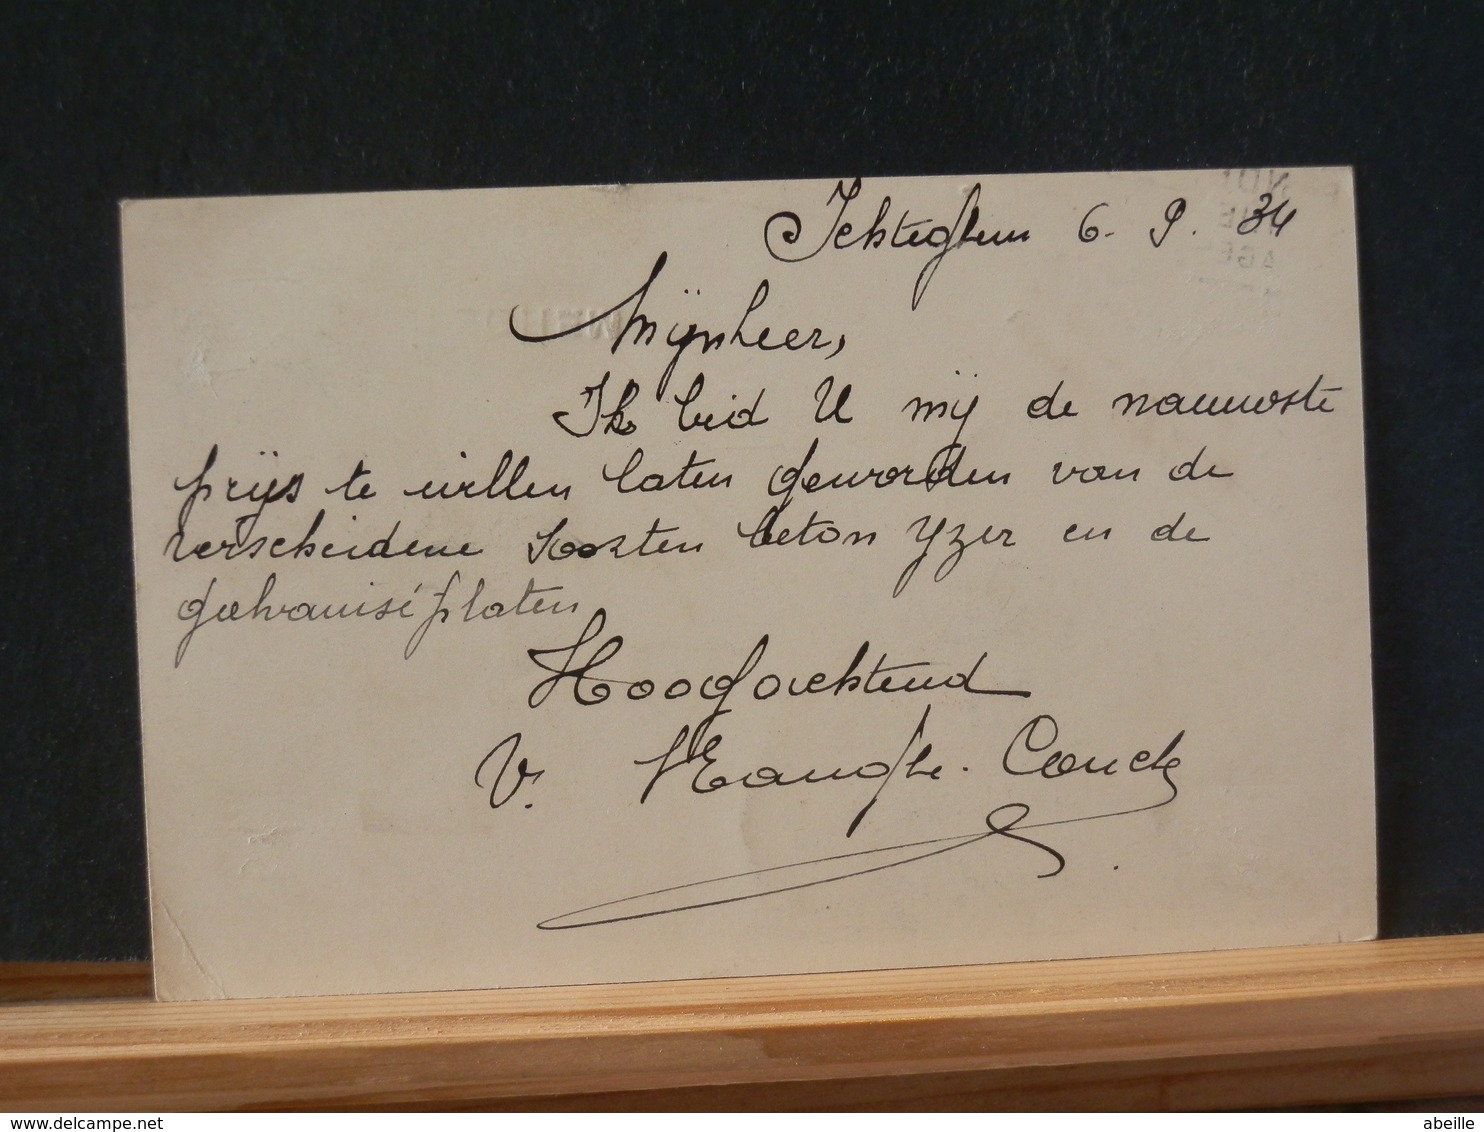 Ichteghem 6. 9. 34
Mijnheer,
Ik bid U mij de nauwwste
prijs te willen laten geworden van de
verscheidene soorten beton yzer en de
galvanisé platen
Hoogachtend
V. Maenghe. Couck
delcampe.net
abeille